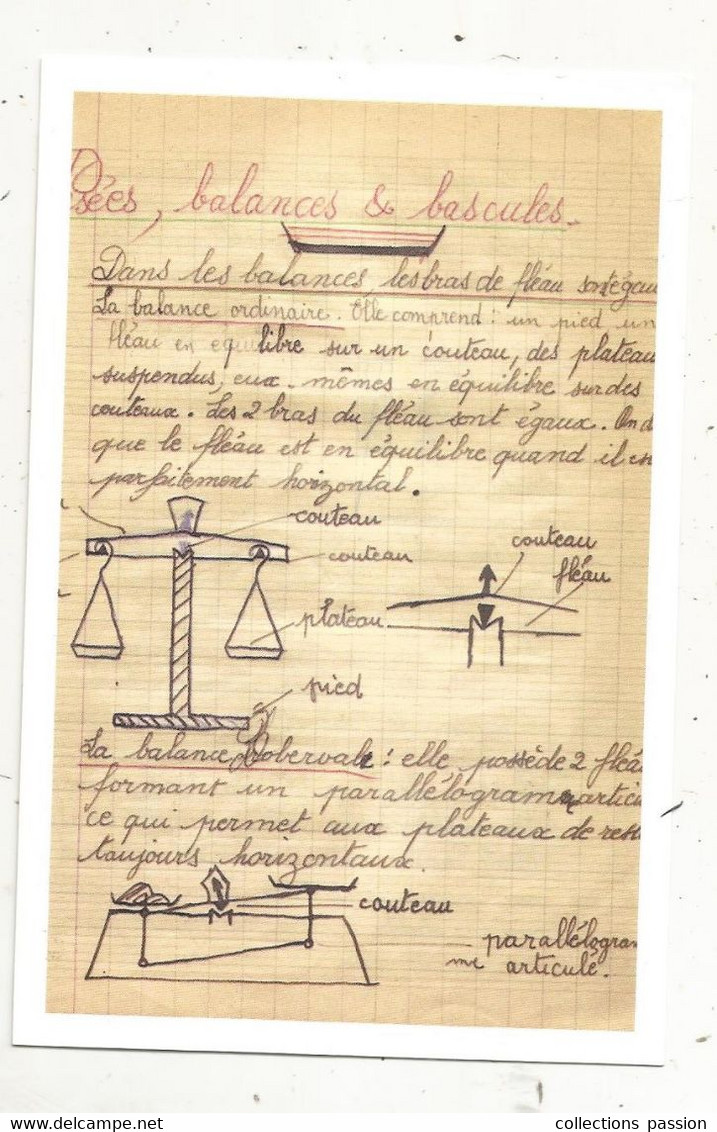 Pesées, balances & bascules.
Dans les balances, les bras de fléau sont égau
La balance ordinaire. Elle comprend : un pied un
fléau en équilibre sur un couteau, des plateau
suspendus, eux-mêmes en équilibre sur des
couteaux. Les 2 bras du fléau sont égaux. On d
que le fléau est en équilibre quand il es
parfaitement horizontal.
couteau
couteau
plateau
pied
couteau
fléau
La balance Roberval : elle possède 2 fléa
formant un parallélogramme articu
ce qui permet aux plateaux de rest
toujours horizontaux.
couteau
parallélogram
me articulé.
collections passion